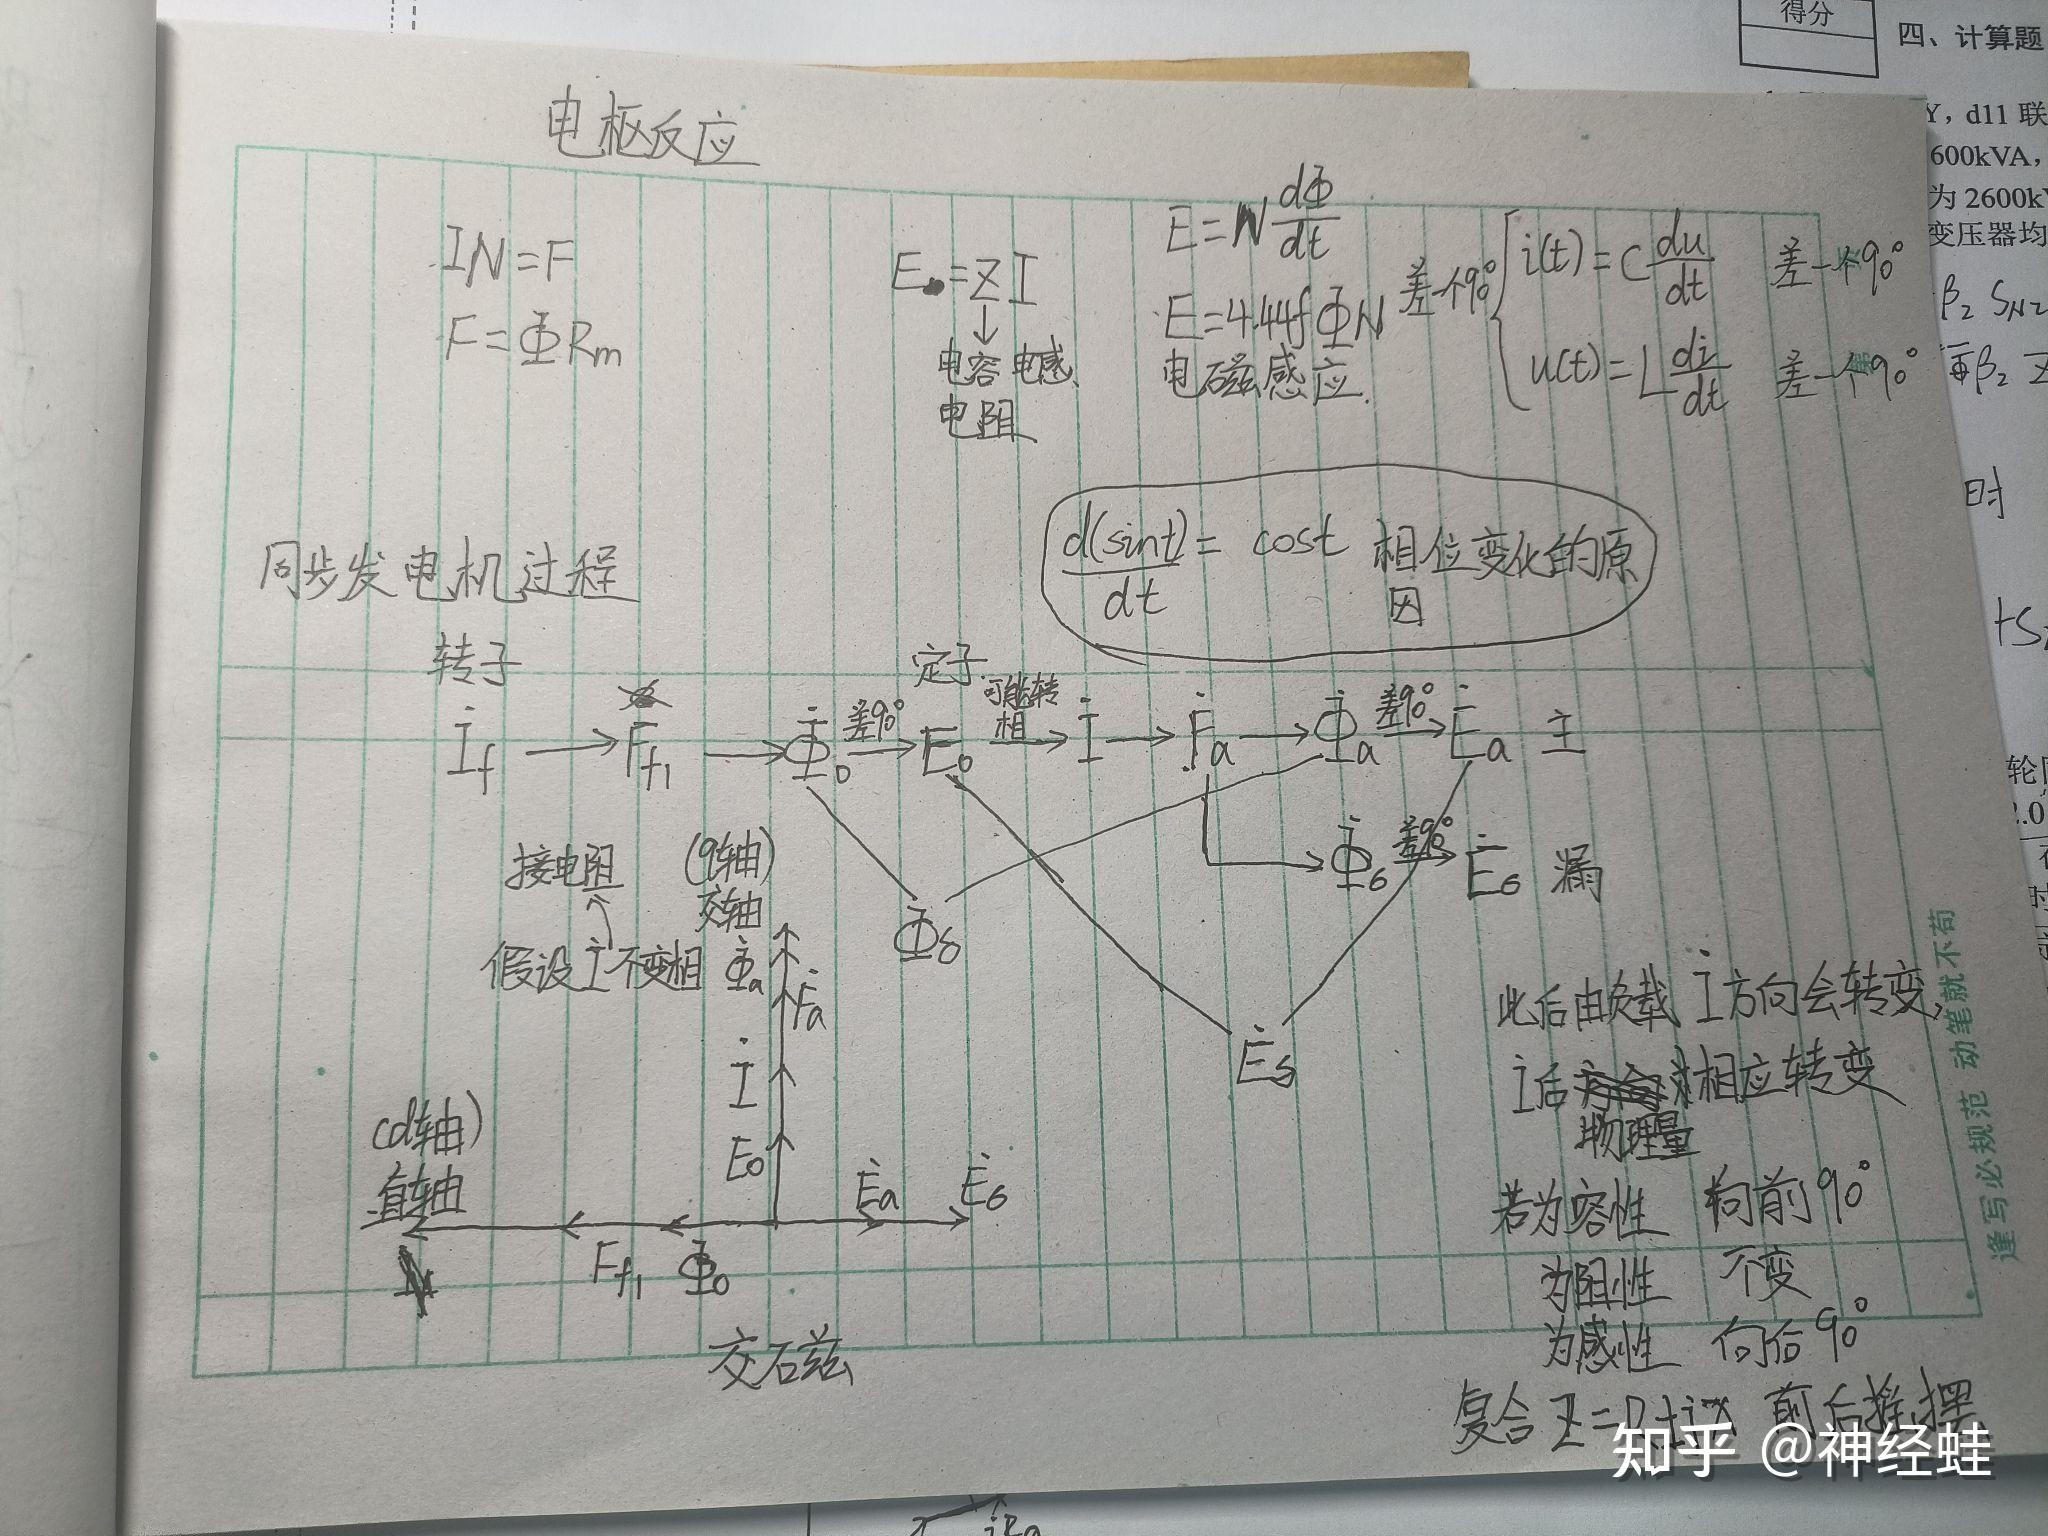 得分
四、计算题
Y，d11 联
600kVA，
为 2600k
变压器均
β₂ S_N
β₂ Z
时
+S
轮
2.0
电枢反应
IN=F
F=ΦR_m
E=ZI
↓
电容 电感
电阻
E=N dΦ/dt
E=4.44fΦN
电磁感应.
差一个90°
i(t)=C du/dt 差一个90°
u(t)=L di/dt 差一个90°
d(sint)/dt = cost 相位变化的原
因
同步发电机过程
转子 定子
İ_f → F_f1 → Φ̇_0 差90° → E_0 可能转相 → İ → Ḟ_a → Φ̇_a 差90° → Ė_a 主
Φ̇_σ 差90° → Ė_σ 漏
Φ̇_δ
Ė_δ
接电阻
假设İ不变相
(q轴)
交轴
Φ̇_a
Ḟ_a
İ
E_0
(d轴)
直轴
Ė_a Ė_σ
F_f1 Φ_0
交磁
此后由负载 İ方向会转变,
İ后 相应转变
物理量
若为容性 向前90°
为阻性 不变
为感性 向后90°
复合Z=R+jX 前后摇摆
逢写必规范 动笔就不苟
知乎 @神经蛙